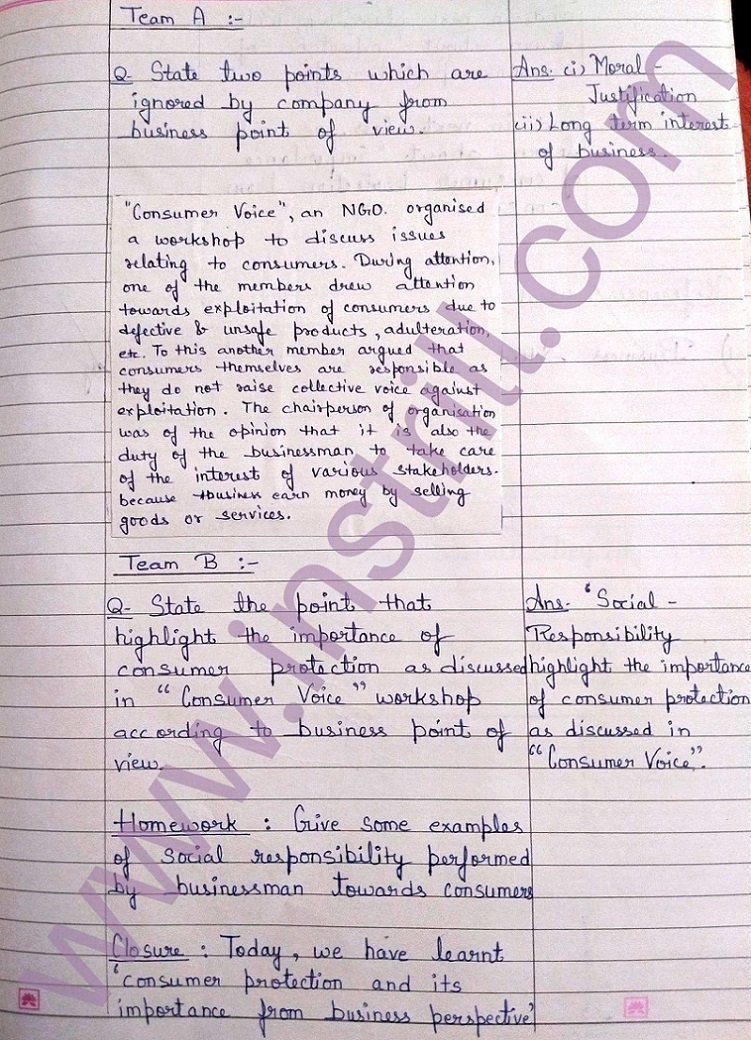 Team A :-
Q- State two points which are
ignored by company from
business point of view.
Ans. (i) Moral -
Justification
(ii) Long term interest
of business.
"Consumer Voice", an NGO. organised
a workshop to discuss issues
relating to consumers. During attention,
one of the members drew attention
towards exploitation of consumers due to
defective & unsafe products, adulteration,
etc. To this another member argued that
consumers themselves are responsible as
they do not raise collective voice against
exploitation. The chairperson of organisation
was of the opinion that it is also the
duty of the businessman to take care
of the interest of various stakeholders.
because business earn money by selling
goods or services.
Team B :-
Q- State the point that
highlight the importance of
consumer protection as discussed
in "Consumer Voice" workshop
according to business point of
view.
Ans- 'Social -
Responsibility
highlight the importance
of consumer protection
as discussed in
"Consumer Voice".
Homework : Give some examples
of social responsibility performed
by businessman towards consumers
Closure : Today, we have learnt
'consumer protection and its
importance from business perspective'
www.instrill.com